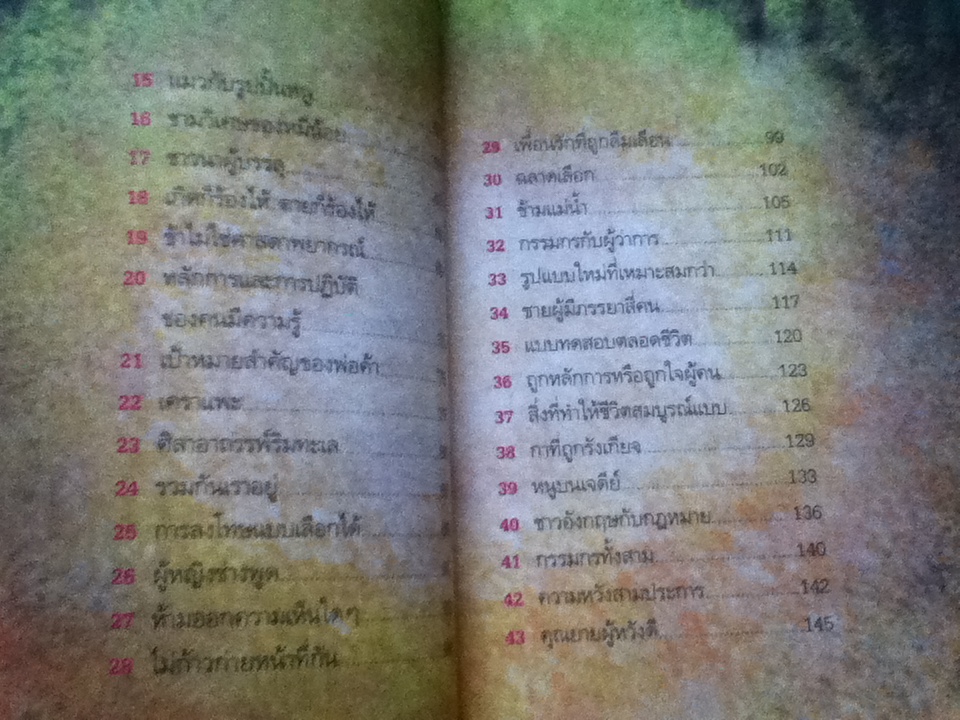 15 แมวกับรูปปั้นหนู
16 ชามวิเศษของหมีน้อย
17 ชาวนาผู้บรรลุ
18 เกิดก็ร้องไห้ ตายก็ร้องไห้
19 ข้าไม่ใช่ศาสดาพยากรณ์
20 หลักการและการปฏิบัติ
ของคนมีความรู้
21 เป้าหมายสำคัญของพ่อค้า
22 เคราะแพะ
23 ศิลาอาถรรพ์ริมทะเล
24 รวมกันเราอยู่
25 การลงโทษแบบเลือกได้
26 ผู้หญิงช่างพูด
27 ห้ามออกความเห็นใดๆ
28 ไม่ก้าวก่ายหน้าที่กัน
29 เพื่อนรักที่ถูกลืมเลือน 99
30 ฉลาดเลือก 102
31 ข้ามแม่น้ำ 105
32 กรรมกรกับผู้ว่าการ 111
33 รูปแบบใหม่ที่เหมาะสมกว่า 114
34 ชายผู้มีภรรยาสี่คน 117
35 แบบทดสอบตลอดชีวิต 120
36 ถูกหลักการหรือถูกใจผู้คน 123
37 สิ่งที่ทำให้ชีวิตสมบูรณ์แบบ 126
38 กาที่ถูกรังเกียจ 129
39 หนูบนเจดีย์ 133
40 ชาวอังกฤษกับกฎหมาย 136
41 กรรมกรทั้งสาม 140
42 ความหวังสามประการ 142
43 คุณยายผู้หวังดี 145